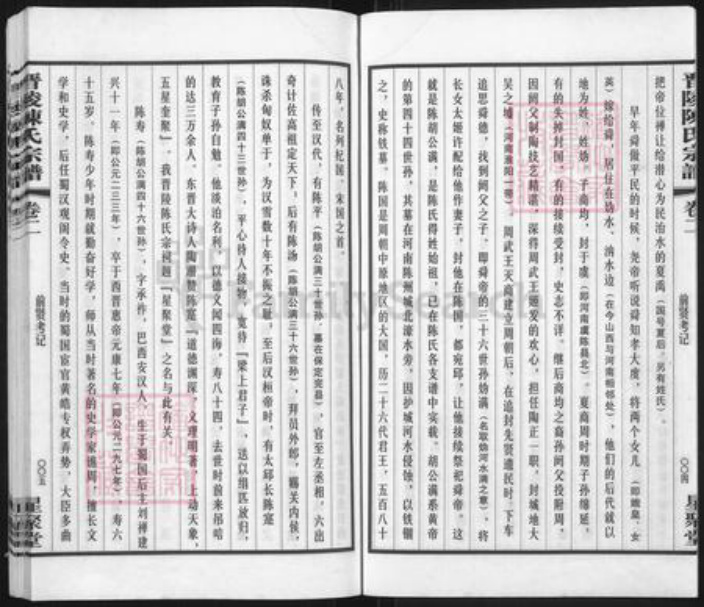 晋陵陈氏宗谱 卷二 前贤考记 〇〇四 星聚堂
把帝位禅让给潜心为民治水的夏禹(国号夏后,另有姓氏)。
早年舜做平民的时候,尧帝听说舜知孝大度,将两个女儿(即娥皇、女
英)嫁给舜,居住在妫水、汭水边(在今山西与河南相邻处),他们的后代就以
地为姓,姓妫。子商均,封于虞(即河南虞陈县北)。夏商周时期子孙绵延,
有的失掉封国,有的接续受封,史志不详。继后商均之裔孙阏父投附周,
因阏父制陶技艺精湛,深得周武王姬发的欢心,担任陶正一职,封城地大
吴之墟(河南淮阳一带)。周武王灭商建立周朝后,在追封先贤遗民时,下车
追思舜德,找到阏父之子、即舜帝的三十六世孙妫满(名取妫河水满之意),将
长女太姬许配给他作妻子,封他在陈国,都宛邱,让他接续祭祀舜帝。这
就是陈胡公满,是陈氏得姓始祖,已在陈氏各支谱中实载。胡公满系黄帝
的第四十四世孙,其墓在河南陈州城北濠水旁,因护城河水侵蚀,以铁锢
之,史称铁墓。陈国是周朝中原地区的大国,历二十六代君王,五百八十
八年,名列杞国、宋国之首。
传至汉代,有陈平(陈胡公满三十世孙,墓在保定完县),官至左丞相,六出
奇计佐高祖定天下。后有陈汤(陈胡公满三十六世孙),拜员外郎,赐关内侯,
诛杀匈奴单于,为汉雪数十年不振之耻。至后汉桓帝时,有太邱长陈寔
(陈胡公满四十三世孙),平心待人接物,宽待『梁上君子』,送以绢匹放归,
教育子孙自勉。他淡泊名利,以德义闻四海,寿八十四,去世时前来吊唁
的达三万余人。东晋大诗人陶渊赞陈寔『道德渊深,义理明著,上动天象,
五星奎聚』。我晋陵陈氏宗祠题『星聚堂』之名与此有关。
陈寿(陈胡公满四十六世孙),字承祚,巴西安汉人,生于蜀国后主刘禅建
兴十一年(即公元二三三年),卒于西晋惠帝元康七年(即公元二九七年),寿六
十五岁。陈寿少年时期就勤奋好学,师从当时著名的史学家谯周,擅长文
学和史学,后任蜀汉观阁令史。当时的蜀国宦官黄皓专权弄势,大臣多曲
晋陵陈氏宗谱 卷二 前贤考记 〇〇五 星聚堂
FamilySearch